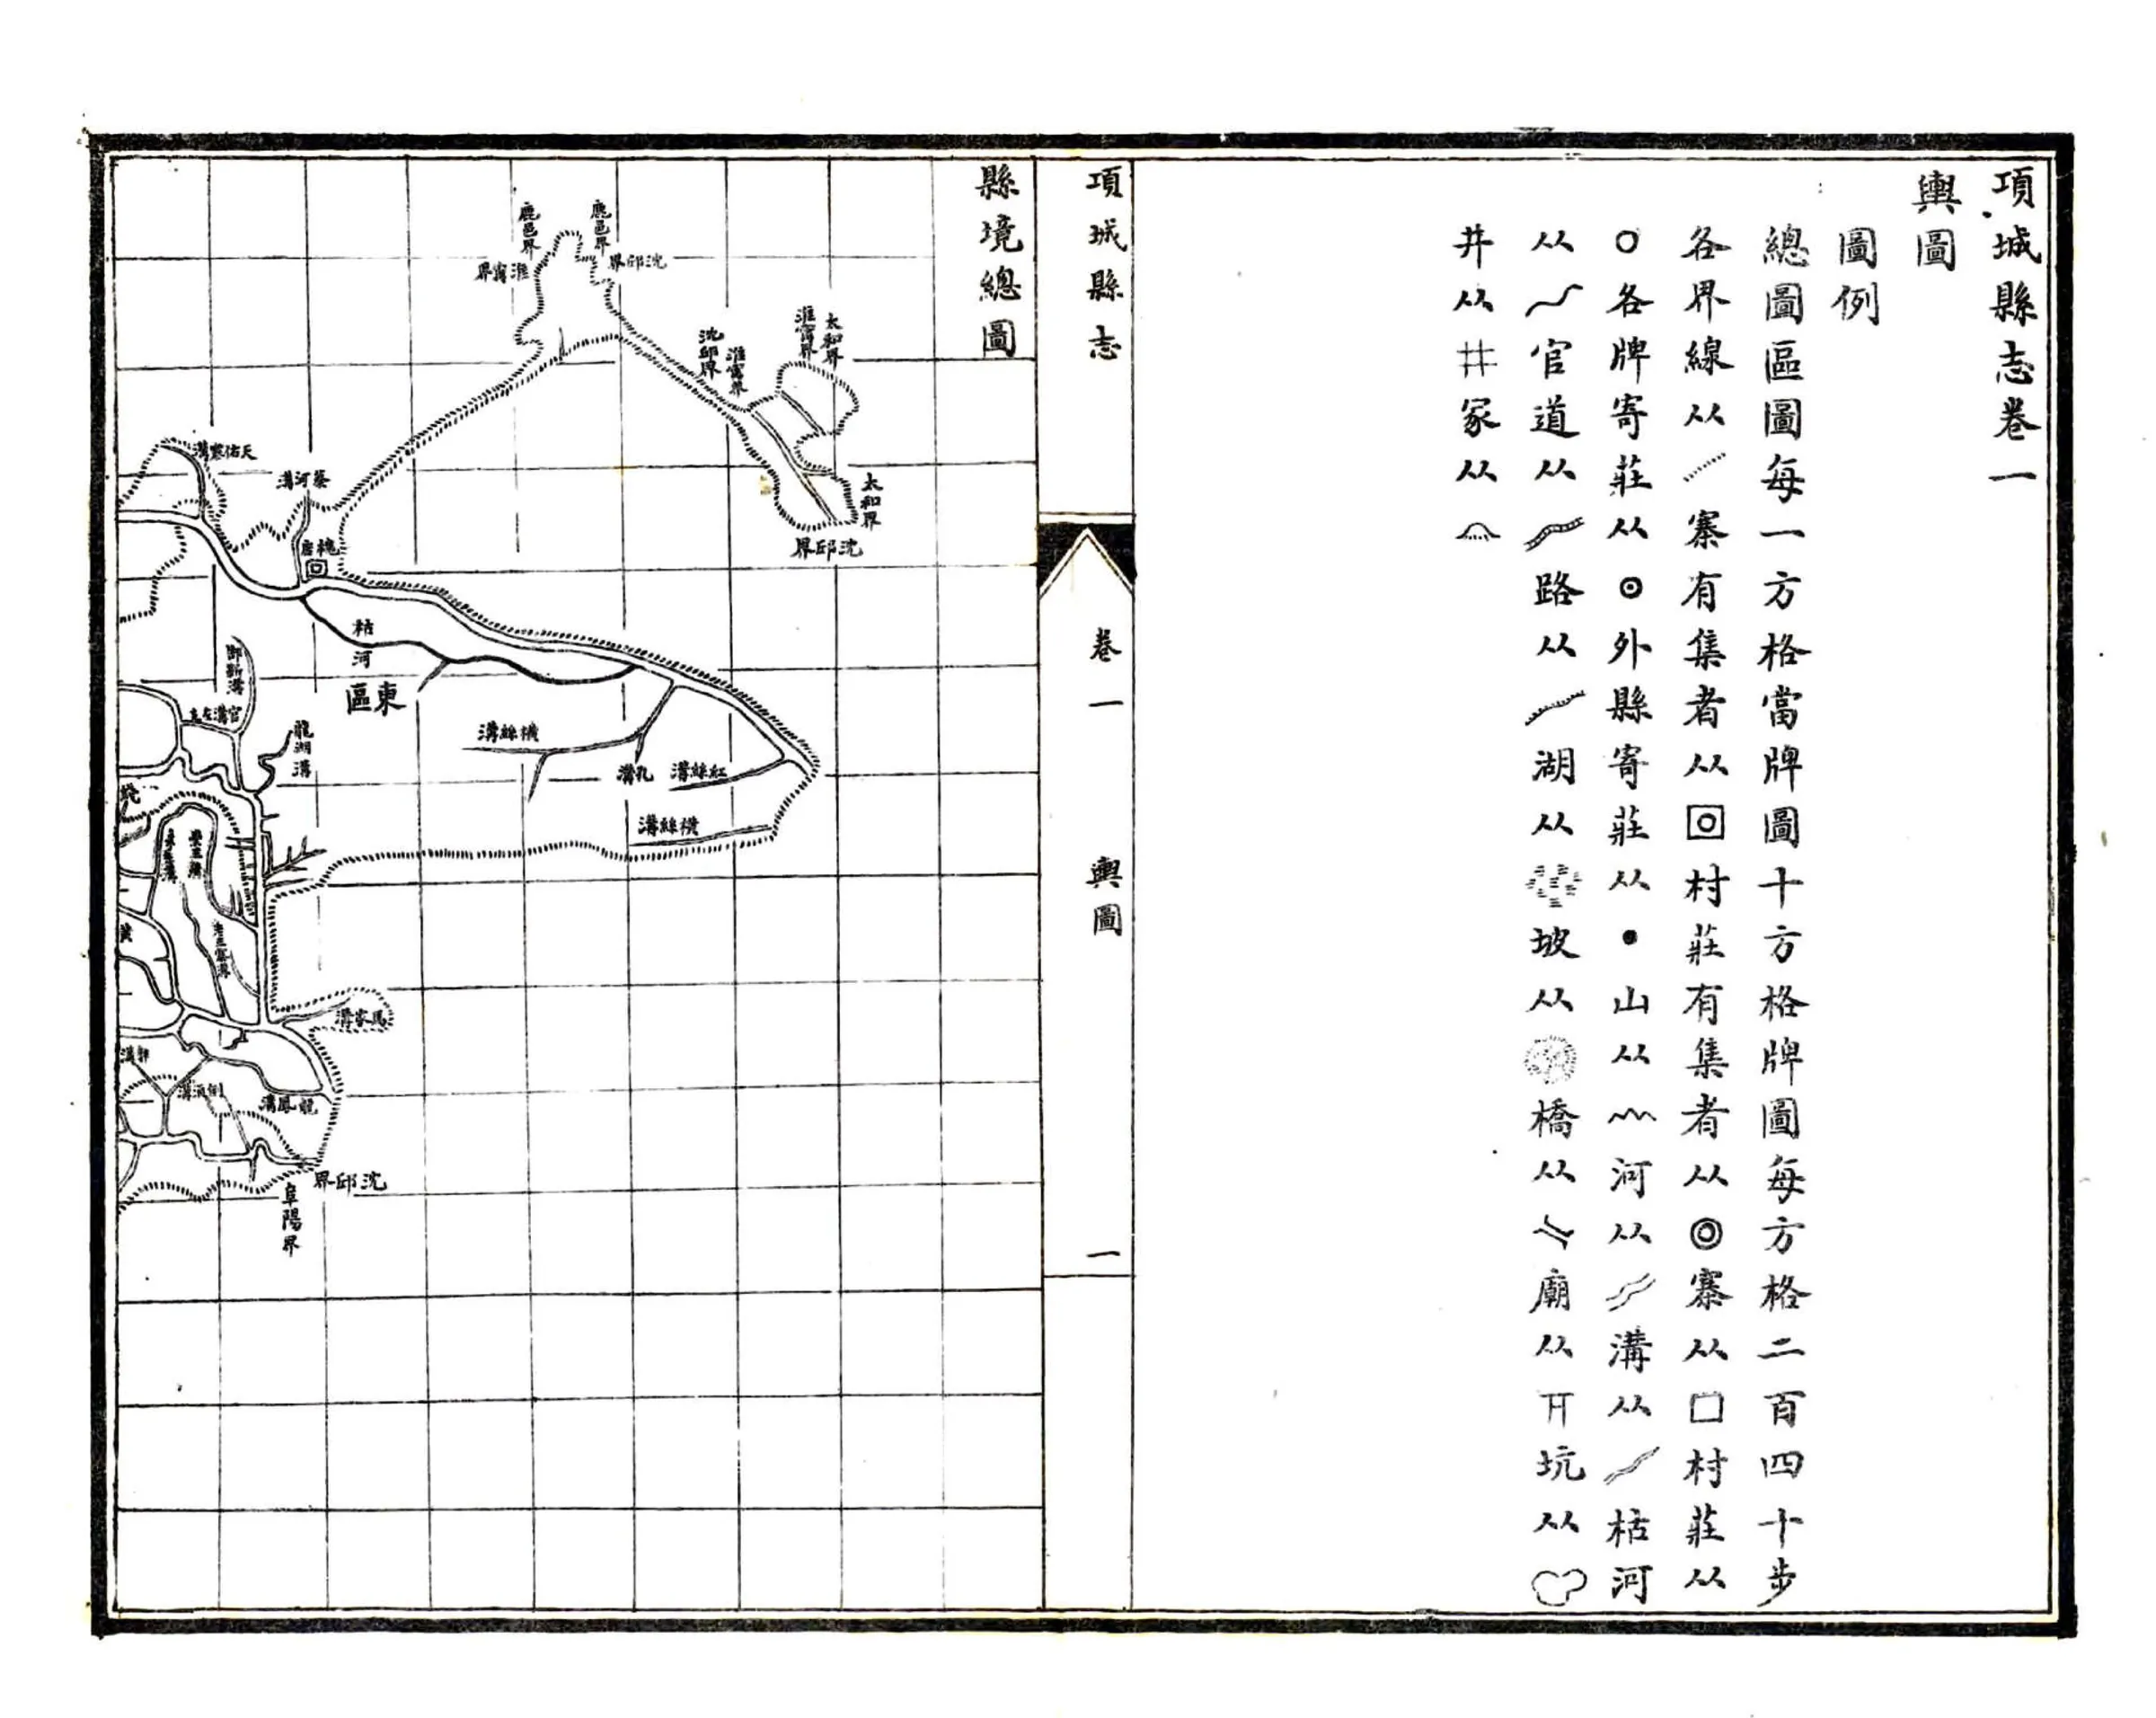 項城縣志卷一
輿圖
圖例
總圖區圖每一方格當牌圖十方格牌圖每方格二百四十步
各界線从寨有集者从村莊有集者从寨从村莊从
各牌寄莊从外縣寄莊从山从河从溝从枯河
从官道从路从湖从坡从橋从廟从坑从
井从冢从
項城縣志
卷一
輿圖
一
縣境總圖
鹿邑界
鹿邑界
淮甯界
沈邱界
沈邱界
淮甯界
淮甯界
太和界
太和界
沈邱界
天佑寨溝
蔡河溝
槐店
枯河
東區
御新溝
龍湖溝
橫絲溝
孔溝
紅絲溝
橫絲溝
馬家溝
郭溝
龍鳳溝
沈邱界
阜陽界